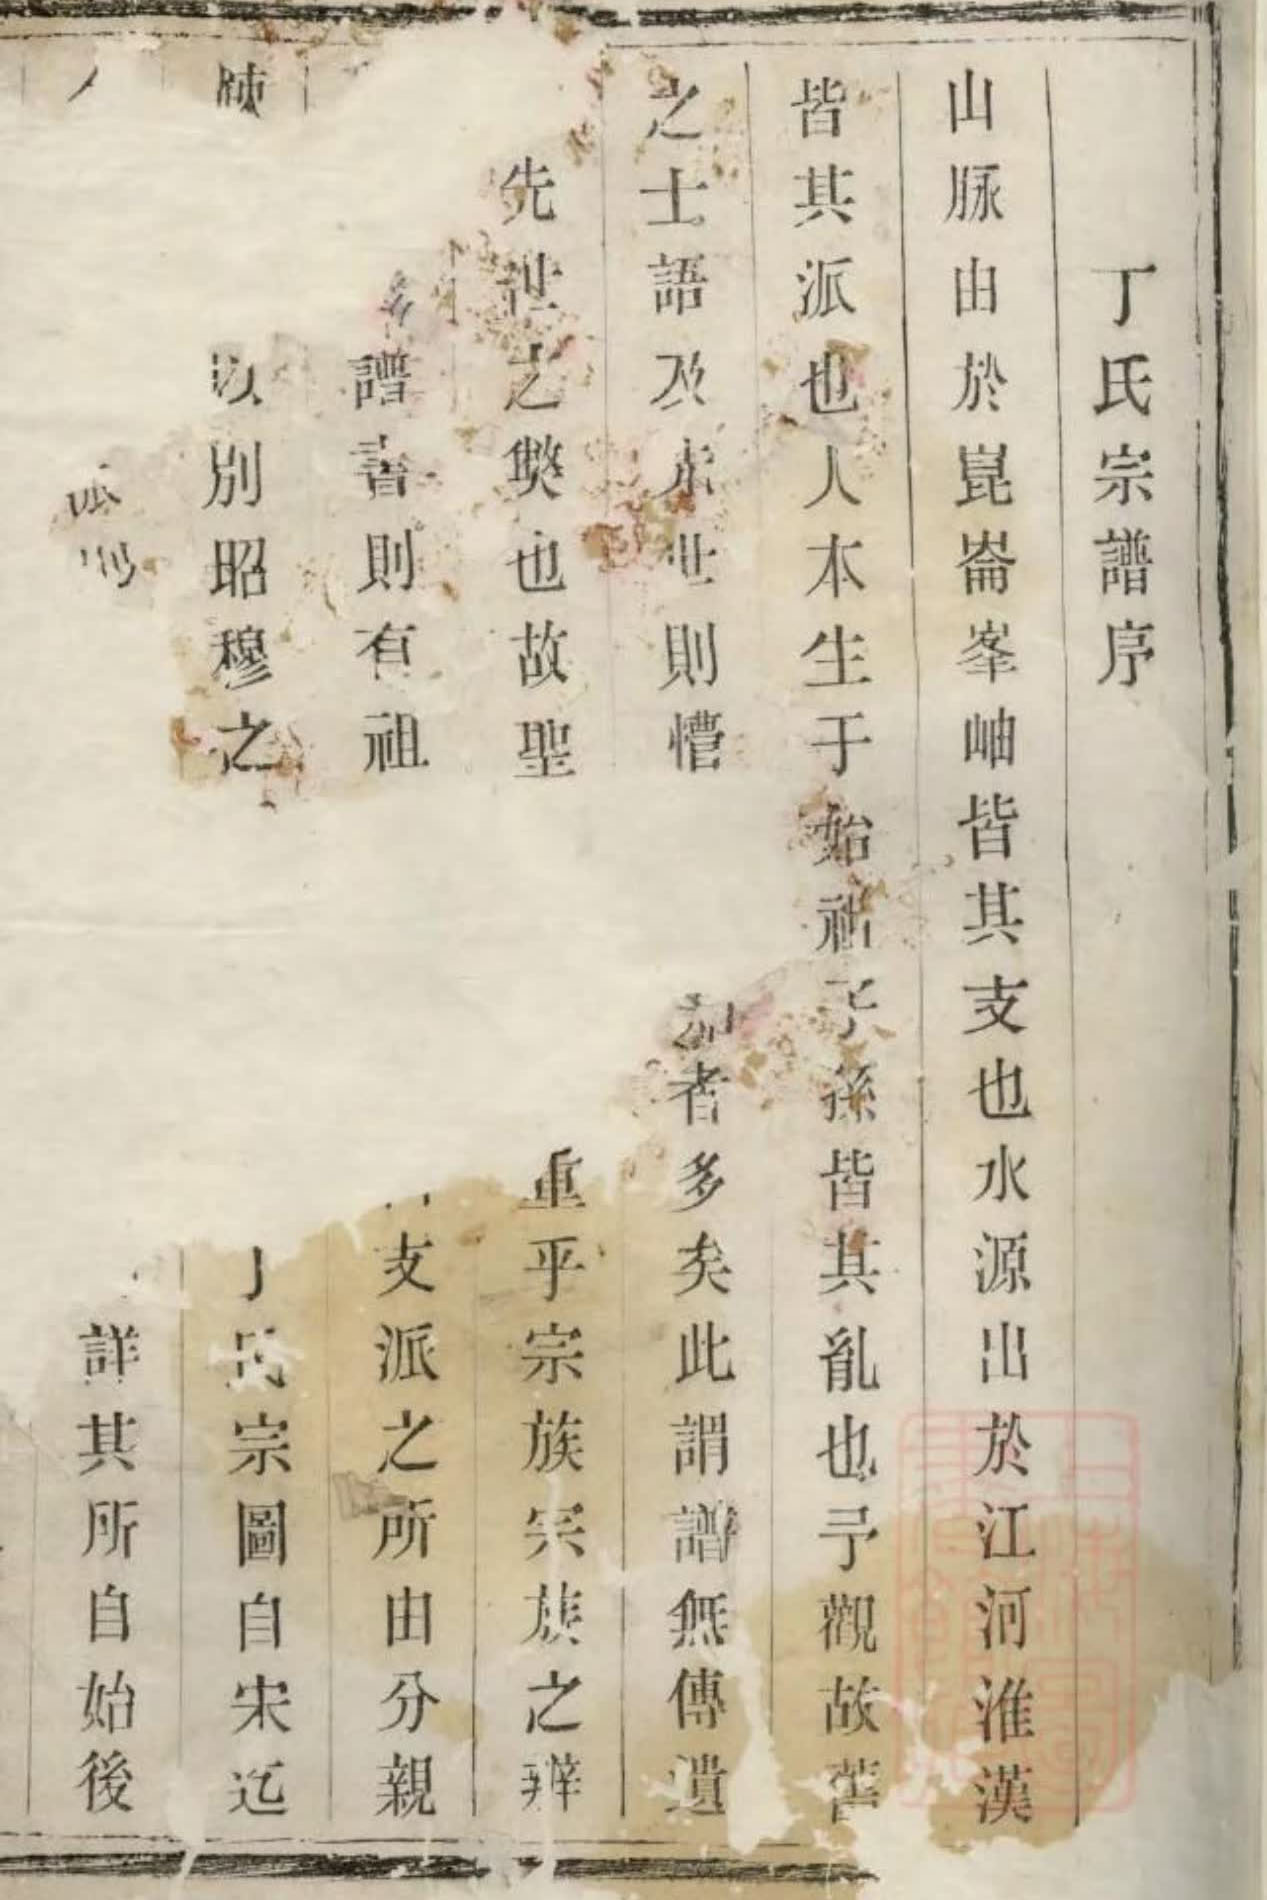 丁氏宗譜序
山脉由於崑崙峯岫皆其支也水源出於江河淮漢
皆其派也人本生于始祖子孫皆其亂也予觀故舊
之士語及先世則懵者多矣此謂譜無傳遺
先世之弊也故聖重乎宗族宗族之辨
譜書則有祖支派之所由分親
以別昭穆之丁氏宗圖自宋迄
詳其所自始後